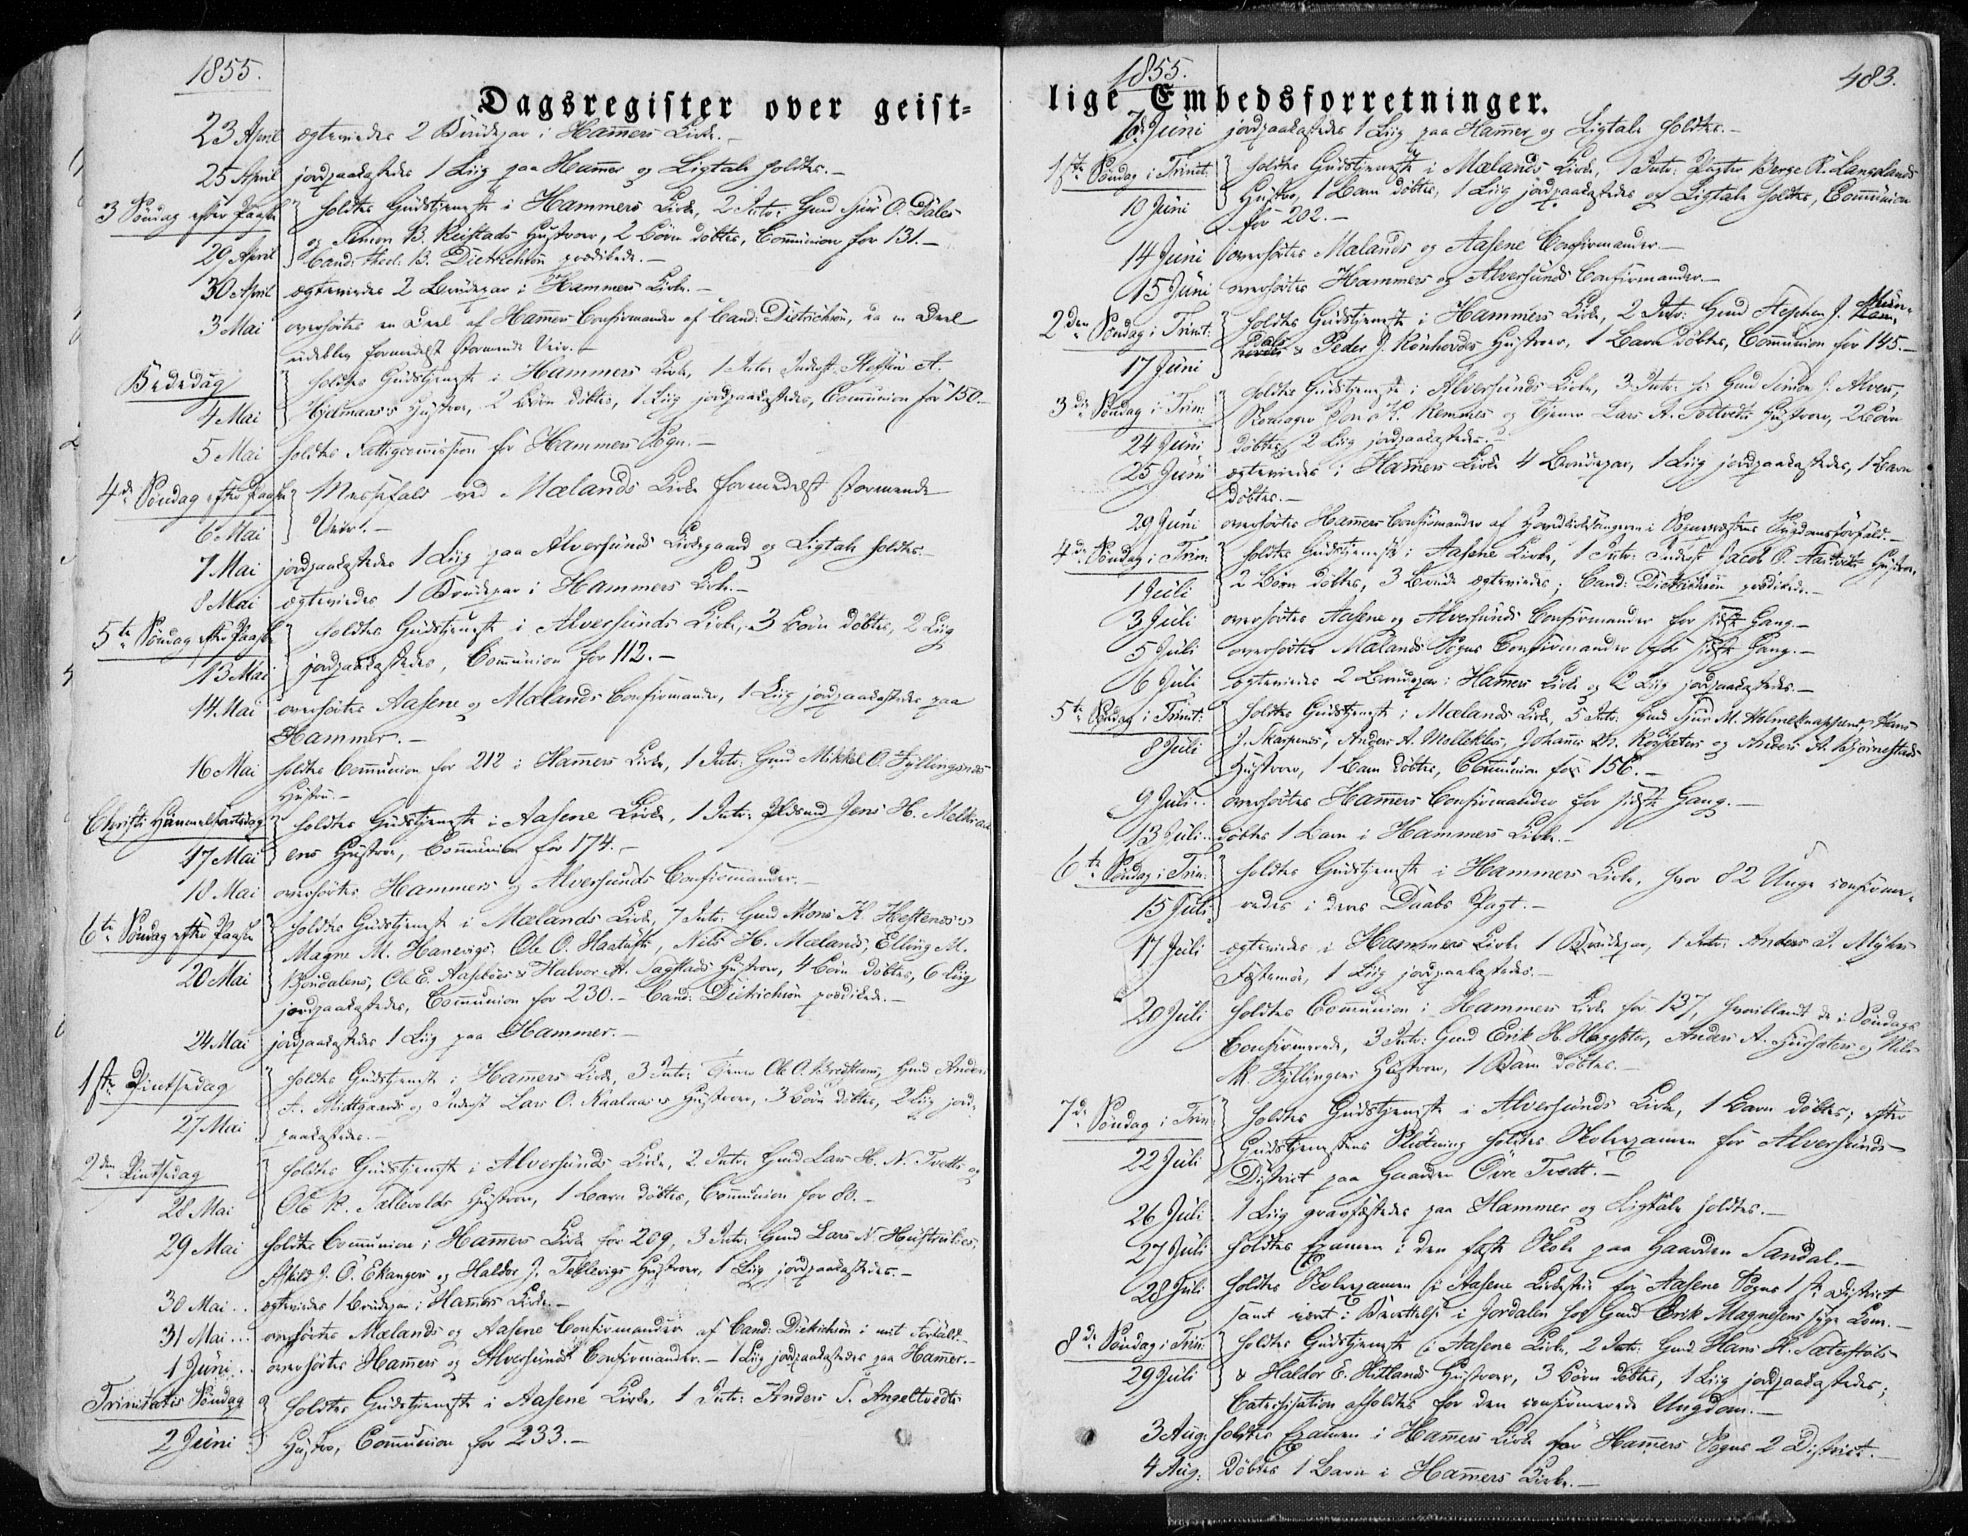 1855.
Dagsregister over geist=
23 April ægteviedes 2 Brudepar i Hammers Kirke.
25 April jordpaakastedes 1 Liig paa Hammer og Ligtale holdtes.
3 Søndag efter Paaske holdtes Gudstjeneste i Hammers Kirke, 2 Intr: Gmd Siur O. Dales
og Simon B. Reistads Hustruer, 2 Børn døbtes, Communion for 131.
29 April Cand: theol. B. Dietrichson prædikede.
30 April ægteviedes 2 Brudepar i Hammers Kirke.
3 Mai overhørtes en Deel af Hammers Confirmander af Cand: Dietrichson, da en Deel
udeblev formedelst stormende Veir.
Bededag holdtes Gudstjeneste i Hammers Kirke, 1 Intr: Inderst Steffen A.
4 Mai Hustru, 2 Børn døbtes, 1 Liig jordpaakastedes, Communion for 150.
5 Mai holdtes Fattigcommission for Hammers Sogn.
4de Søndag efter Paaske Messefald ved Mælands Kirke formedelst stormende
6 Mai Veir.
7 Mai jordpaakastedes 1 Liig paa Alversunds Kirkegaard og Ligtale holdtes.
8 Mai ægteviedes 1 Brudepar i Hammers Kirke.
5te Søndag efter Paaske holdtes Gudstjeneste i Alversunds Kirke, 3 Børn døbtes, 2 Liig
13 Mai jordpaakastedes, Communion for 112.
14 Mai overhørtes Aasene og Mælands Confirmander, 1 Liig jordpaakastedes paa
Hammer.
16 Mai holdtes Communion for 212 i Hammers Kirke, 1 Intr: Gmd Mikkel O. Fyllingsnes
Hustru.
Christi Himmelfartsdag holdtes Gudstjeneste i Aasene Kirke, 1 Intr: Jens H.
17 Mai Hustru, Communion for 174.
18 Mai overhørtes Hammers og Alversunds Confirmander.
6te Søndag efter Paaske holdtes Gudstjeneste i Mælands Kirke, 7 Intr: Gmd Mons K.
Magne M. Ole O. Nils H. Mælands, Elling M.
20 Mai Ole E. Halvor H. Hustruer, 4 Børn døbtes, 6 Liig
jordpaakastedes, Communion for 230. Cand: Dietrichson prædikede.
24 Mai jordpaakastedes 1 Liig paa Hammer.
1ste Pintsedag holdtes Gudstjeneste i Hammers Kirke, 3 Intr: Ole O. Gmd Anders
Midtgaards og Inderst Lars O. Hustruer, 3 Børn døbtes, 2 Liig jord-
27 Mai paakastedes.
2den Pintsedag holdtes Gudstjeneste i Alversunds Kirke, 2 Intr: Gmd Lars H. N. Tvedts og
28 Mai Ole K. Hustruer, 1 Barn døbtes, Communion for 80.
29 Mai holdtes Communion i Hammers Kirke for 209, 3 Intr: Gmd Lars N.
J. Ö. Ekangers og Haldor J. Hustruer, 1 Liig jordpaakastedes.
30 Mai ægteviedes 1 Brudepar i Hammers Kirke.
31 Mai overhørtes Mælands og Aasene Confirmander af Cand: Dietrichson i mit Forfald.
1 Juni overhørtes Hammers og Alversunds Confirmander. 1 Liig jordpaakastedes paa Hammer.
Trinitatis Søndag holdtes Gudstjeneste i Aasene Kirke, 1 Intr: Anders S. Angeltvedts
2 Juni Hustru, Communion for 233.
1855. 483.
lige Embedsforretninger.
7de Juni jordpaakastedes 1 Liig paa Hammer og Ligtale holdtes.
1ste Søndag i Trinit: holdtes Gudstjeneste i Mælands Kirke, 1 Intr: Berge R. Langelands
10 Juni Hustru, 1 Barn døbtes, 1 Liig jordpaakastedes og Ligtale holdtes, Communion
for 202.
14 Juni overhørtes Mælands og Aasene Confirmander.
15 Juni overhørtes Hammers og Alversunds Confirmander.
2den Søndag i Trinit: holdtes Gudstjeneste i Hammers Kirke, 2 Intr: Gmd Steffen J.
17 Juni Peder J. Rønhovdes Hustruer, 1 Barn døbtes, Communion for 145.
3die Søndag i Trin: holdtes Gudstjeneste i Alversunds Kirke, 3 Intr: Gmd Simon J. Alvers,
og Lars A. Hustruer, 2 Børn
24 Juni døbtes, 2 Liig jordpaakastedes.
25 Juni ægteviedes i Hammers Kirke 4 Brudepar, 1 Liig jordpaakastedes, 1 Barn
døbtes.
29 Juni overhørtes Hammers Confirmander af i Sognepræstens Sygdomsforfald.
4de Søndag i Trin: holdtes Gudstjeneste i Aasene Kirke, 1 Intr: Inderst Jacob O. Hustru,
1 Juli 2 Børn døbtes, 3 Brude ægteviedes; Cand: Dietrichson prædikede.
3 Juli overhørtes Aasene og Alversunds Confirmander for sidste Gang.
5 Juli overhørtes Mælands Sogns Confirmander for sidste Gang.
6 Juli ægteviedes 2 Brudepar i Hammers Kirke og 2 Liig jordpaakastedes.
5te Søndag i Trinit: holdtes Gudstjeneste i Mælands Kirke, 5 Intr: Gmd Siur M. Holmeknappens, Hans
8 Juli J. Anders A. Johannes og Anders A.
Hustruer, 1 Barn døbtes, Communion for 156.
9 Juli overhørtes Hammers Confirmander for sidste Gang.
13 Juli døbtes 1 Barn i Hammers Kirke.
6te Søndag i Trin: holdtes Gudstjeneste i Hammers Kirke, hvor 82 Unge confirme-
15 Juli redes i deres Daabs Pagt.
17 Juli ægteviedes i Hammers Kirke 1 Brudepar, 1 Intr: Anders
Fæstemø, 1 Liig jordpaakastedes.
20 Juli holdtes Communion i Hammers Kirke for 137, hvoriblandt de i Søndags
Confirmerede, 3 Intr: Gmd Erik H. Anders A. og Nils
M. Fyllingens Hustruer, 1 Barn døbtes.
7de Søndag i Trin: holdtes Gudstjeneste i Alversunds Kirke, 1 Barn døbtes; efter
22 Juli Gudstjenestens Slutning holdtes Skoleexamen for Alversunds
District paa Gaarden Övre Tvedt.
26 Juli 1 Liig gravfæstedes paa Hammer og Ligtale holdtes.
27 Juli holdtes Examen i den faste Skole paa Gaarden Sandal.
28 Juli holdtes Skoleexamen i Aasene for Aasene Sogns 1ste District
samt været i Berettelse i Jordalen hos Gmd Erik Magnesens syge Kone.
8de Søndag i Trin: holdtes Gudstjeneste i Aasene Kirke, 2 Intr: Gmd Hans K.
29 Juli & Haldor E. Hitlands Hustruer, 3 Børn døbtes, 1 Liig jordpaakastedes;
Catechisation afholdtes for den confirmerede Ungdom.
3 Aug: holdtes Examen i Hammers Kirke for Hammers Sogns 2 District.
4 Aug: døbtes 1 Barn i Hammers Kirke.